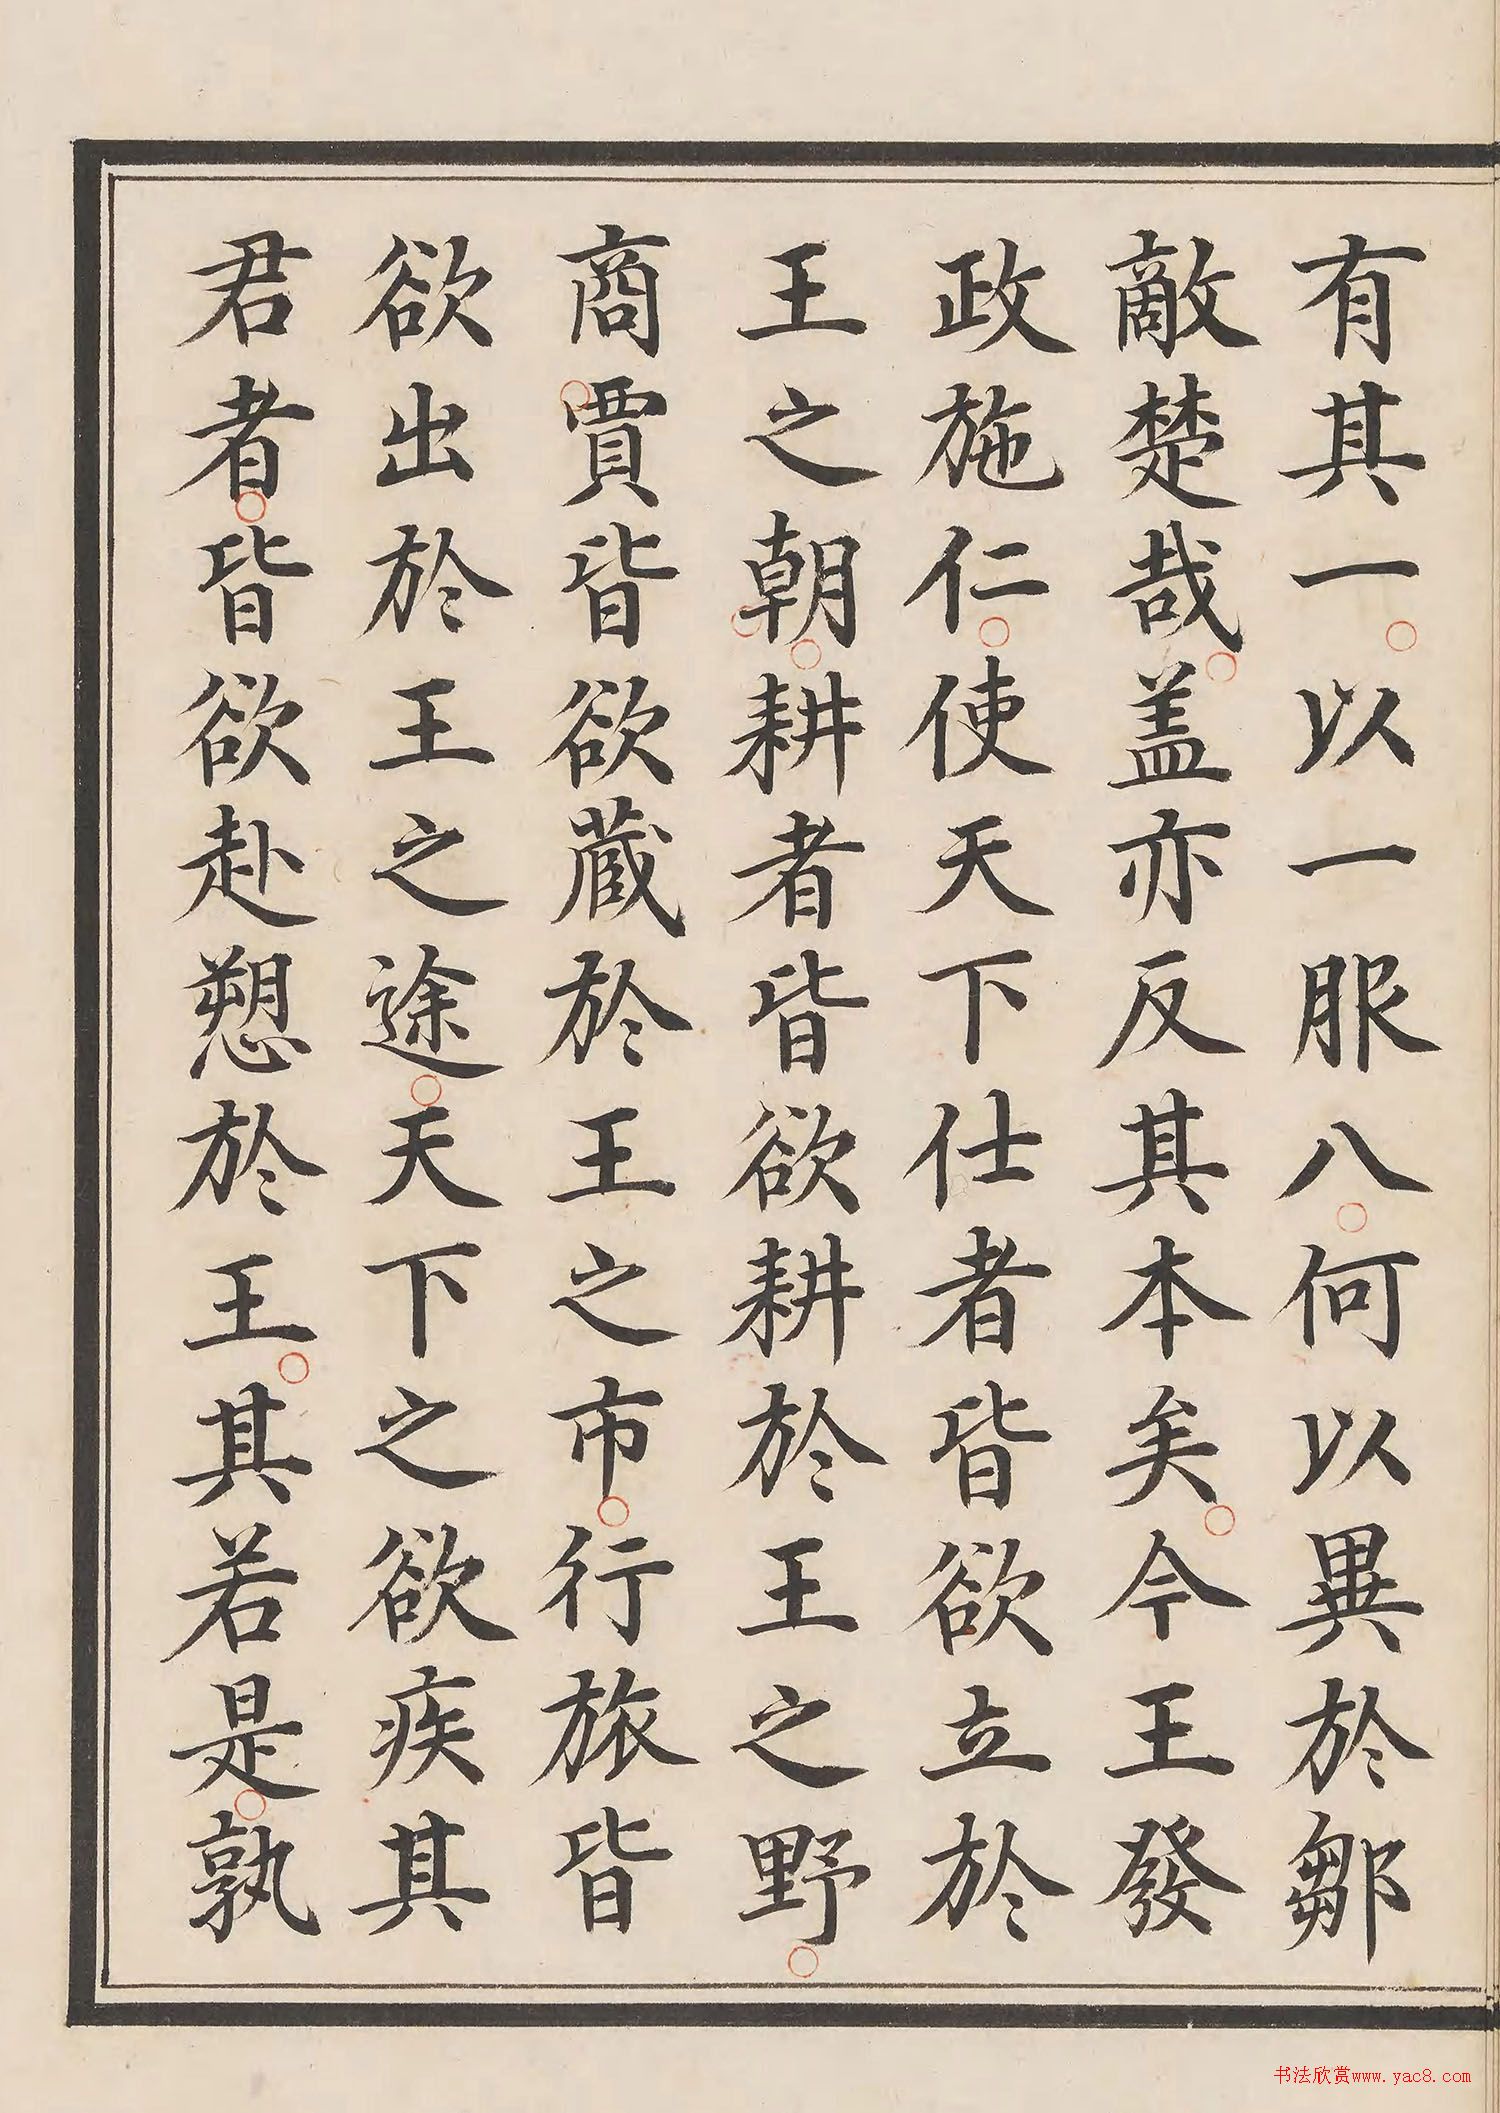 有其一以一服八何以異於鄒
敵楚哉盖亦反其本矣今王發
政施仁使天下仕者皆欲立於
王之朝耕者皆欲耕於王之野
商賈皆欲蔵於王之市行旅皆
欲出於王之途天下之欲疾其
君者皆欲赴愬於王其若是孰
书法欣赏www.yac8.com